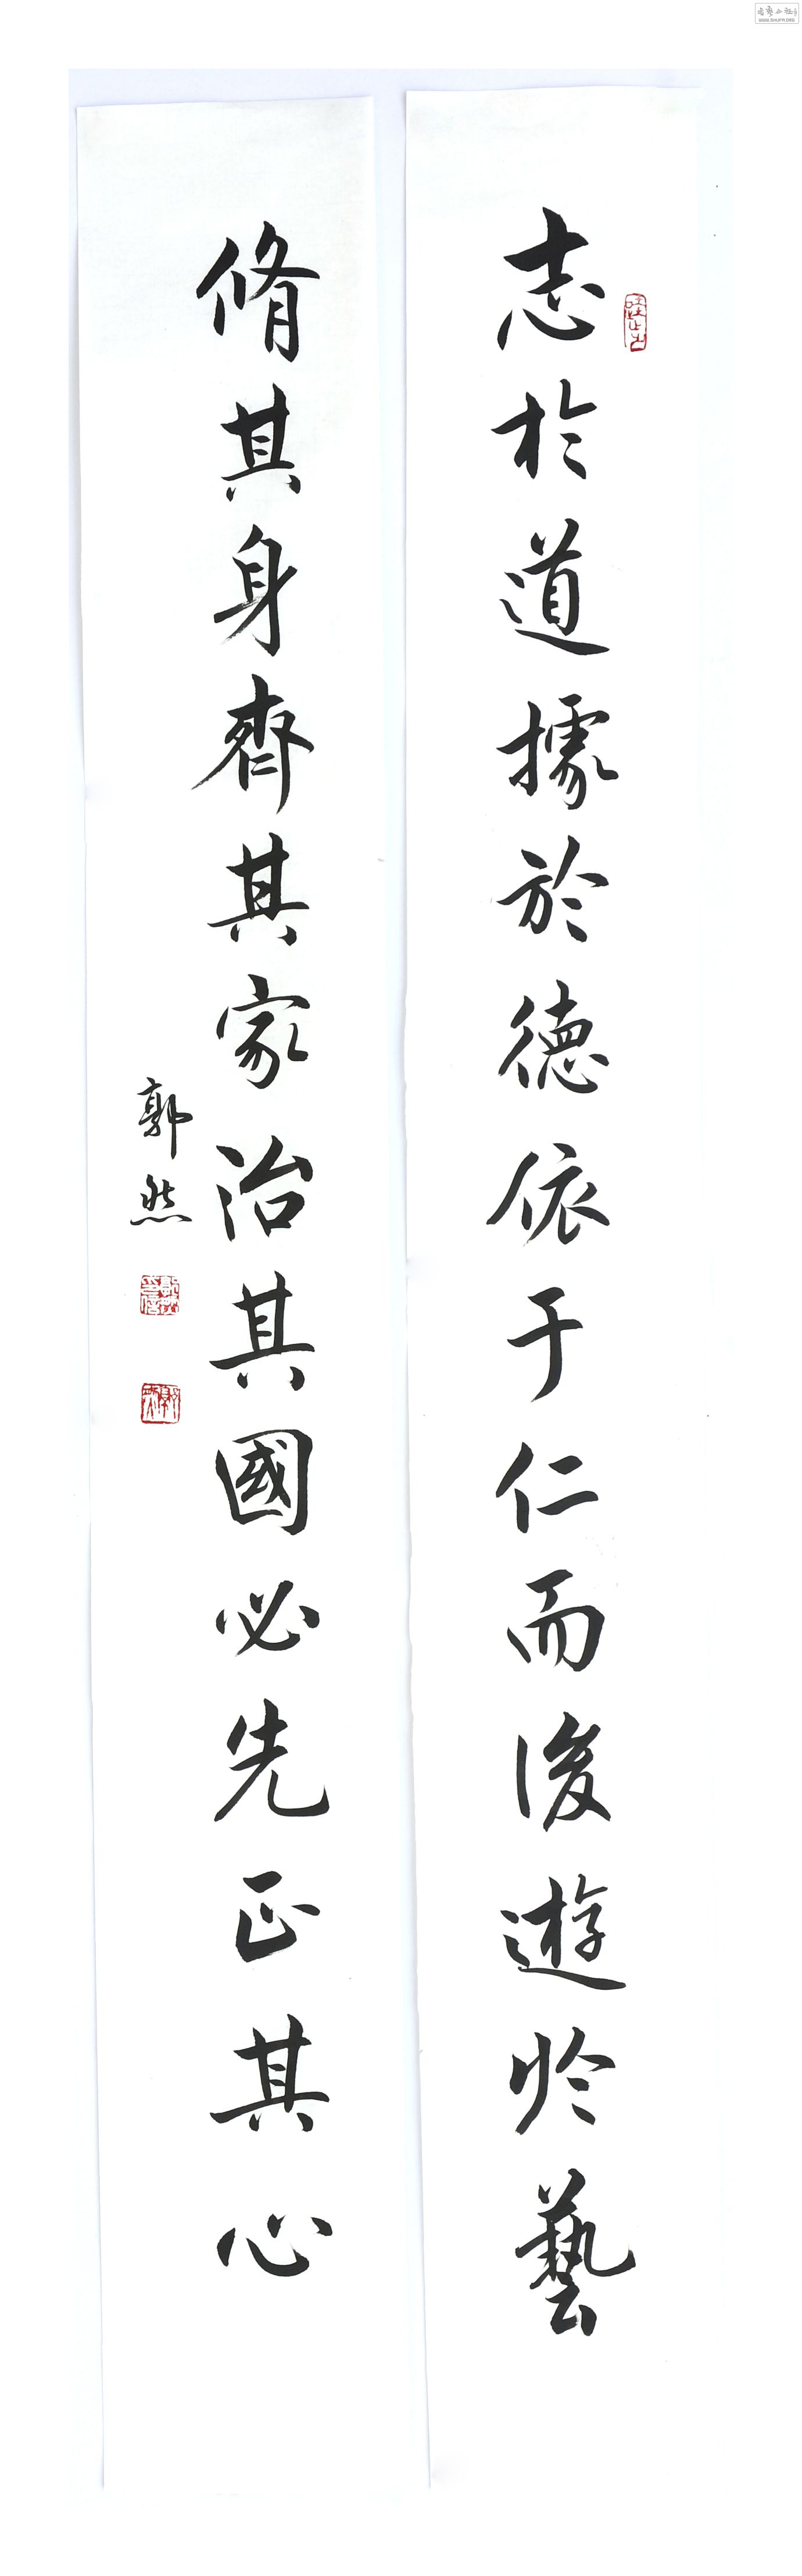 志於道據於德依于仁而後遊於藝
脩其身齊其家治其國必先正其心
郭然
WWW.SHUFA.ORG